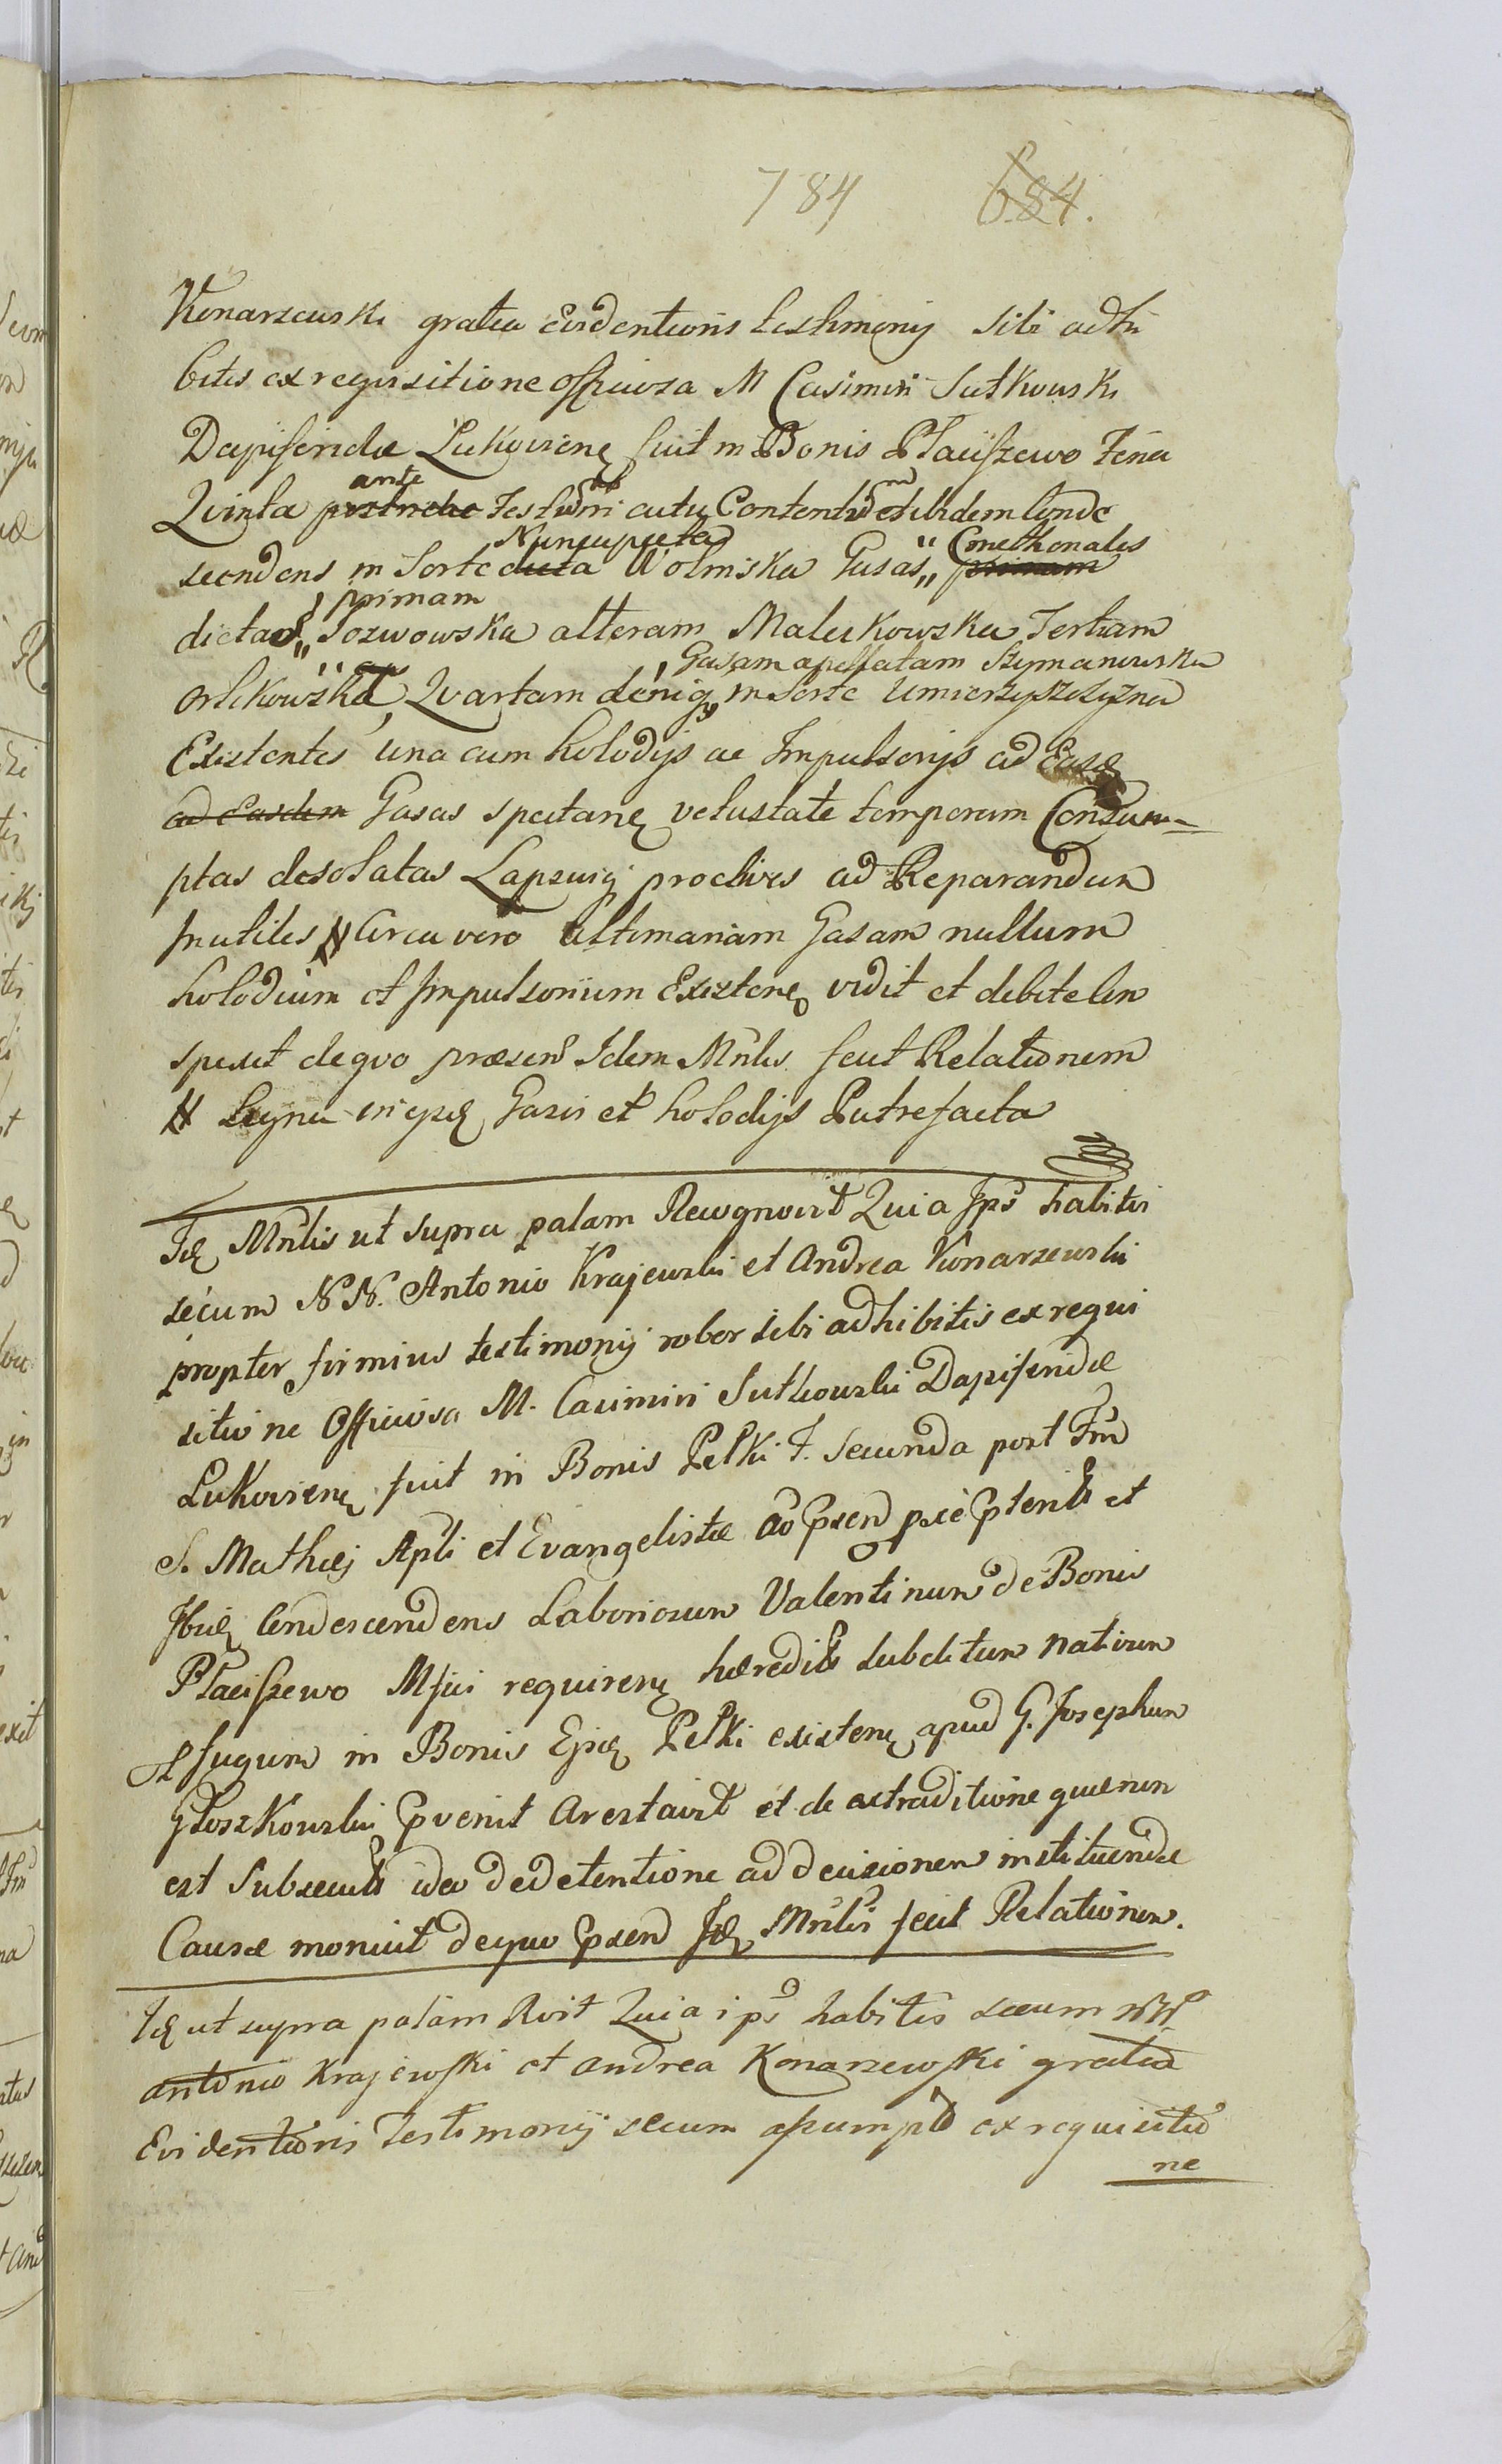 784 684.
Konarzewski gratia Evidentioris testimonij sibi adhi
bitis ex requisitione officiosa M Casimiri Sutkowski
Dapiferidæ Lukovienę fuit in Bonis Płaciszewo Feria
ante
Qvinta pridie Festum actu Contento et ibidem Conde
Nuncupata Cmethonales
scendens in Sorte dicta Wolmiska Gasas primam
primam
dictas Jozwowska alteram Malukowska Tertiam
Gasam apellatam Szymanowska
Orlikowska, Qvartam deniq in Sorte Umierzyszczyzna
Existentes una cum holodijs ac Impulsorijs ad Easd
ad Easdem Gasas spectanę vetustate temporum Consum-
ptas desolatas Lapsuiq proclives ad Reparandum
Inutiles # Circa vero Ultimariam Gasam nullum
holodium et Impulsorium Existenę vidit et debite Con
spexit de qvo præsens Idem Mnlis fecit Relationem
# Ligna in ijsd Gasis et holodijs Putrefacta
Id Mnlis ut supra palam Recognovit Quia Ips habitis
secum NN. Antonio Krajewski et Andrea Konarzewski
propter firmius testimonij robor sibi adhibitis ex requi
sitione Officiosa M. Casimiri Sutkowski Dapiferidæ
Lukovienę fuit in Bonis Pełki F. Secunda post Fm
S. Mathæj Apli et Evangelistæ ao Psen pxie Pterito et
Ibid Condescendens Laboriosum Valentinum de Bonis
Płaciszewo Mfici requirenę hæredis subditum nativum
Pfugum in Bonis Ejsd Pełki existenę apud G. Josephum
Głoszkowski Pvenit Arestavit et de extraditione quæ non
est Subsecuta ideo de detentione ad decisionem instituendæ
Causæ monuit de quo Psen Id Mnlis fecit Relationem.
Id ut supra palam Rvit Quia ips habitis secum NN
antonio Krajewski et andrea Konarzewski gratia
Evidentioris Testimonij secum assumpto ex requisitio
ne